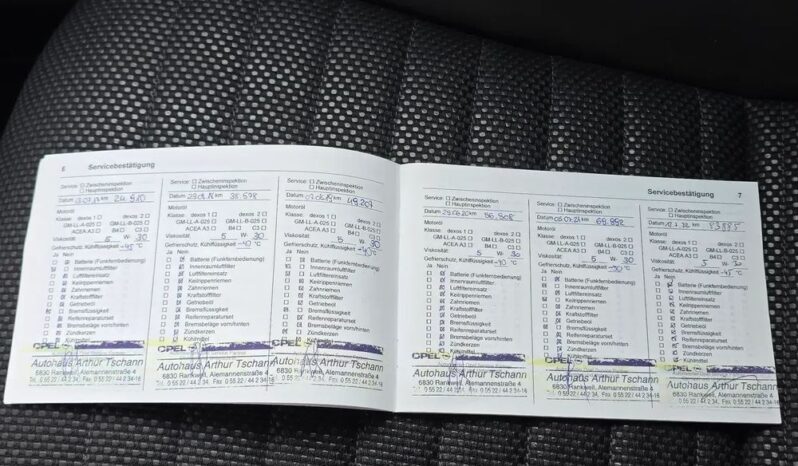 6 Servicebestätigung
Service: Zwischeninspektion
Hauptinspektion
Datum km 24.910
Motoröl
Klasse: dexos 1 dexos 2
GM-LL-A-025 GM-LL-B-025
ACEA A3 B4 C3
Viskosität: 5 W- 30
Gefrierschutz, Kühlflüssigkeit -40 °C
Ja Nein
Batterie (Funkfernbedienung)
Innenraumluftfilter
Luftfiltereinsatz
Keilrippenriemen
Zahnriemen
Kraftstofffilter
Getriebeöl
Bremsflüssigkeit
Reifenreparaturset
Bremsbeläge vorn/hinten
Zündkerzen
Kühlmittel
OPEL
Autohaus Arthur Tschann
6830 Rankweil, Alemannenstraße 4
Tel. 0 55 22 / 44 2 34, Fax 0 55 22 / 44 2 34-16
Service: Zwischeninspektion
Hauptinspektion
Datum km 38.578
Motoröl
Klasse: dexos 1 dexos 2
GM-LL-A-025 GM-LL-B-025
ACEA A3 B4 C3
Viskosität: 5 W- 30
Gefrierschutz, Kühlflüssigkeit -40 °C
Ja Nein
Batterie (Funkfernbedienung)
Innenraumluftfilter
Luftfiltereinsatz
Keilrippenriemen
Zahnriemen
Kraftstofffilter
Getriebeöl
Bremsflüssigkeit
Reifenreparaturset
Bremsbeläge vorn/hinten
Zündkerzen
Kühlmittel
Service: Zwischeninspektion
Hauptinspektion
Datum km 49.207
Motoröl
Klasse: dexos 1 dexos 2
GM-LL-A-025 GM-LL-B-025
ACEA A3 B4 C3
Viskosität: 5 W- 30
Gefrierschutz, Kühlflüssigkeit -40 °C
Ja Nein
Batterie (Funkfernbedienung)
Innenraumluftfilter
Luftfiltereinsatz
Keilrippenriemen
Zahnriemen
Kraftstofffilter
Getriebeöl
Bremsflüssigkeit
Reifenreparaturset
Bremsbeläge vorn/hinten
Zündkerzen
Kühlmittel
OPEL
Autohaus Arthur Tschann
6830 Rankweil, Alemannenstraße 4
Tel. 0 55 22 / 44 2 34, Fax 0 55 22 / 44 2 34-16
Servicebestätigung 7
Service: Zwischeninspektion
Hauptinspektion
Datum 29.06.20 km 56.808
Motoröl
Klasse: dexos 1 dexos 2
GM-LL-A-025 GM-LL-B-025
ACEA A3 B4 C3
Viskosität: 5 W- 30
Gefrierschutz, Kühlflüssigkeit -40 °C
Ja Nein
Batterie (Funkfernbedienung)
Innenraumluftfilter
Luftfiltereinsatz
Keilrippenriemen
Zahnriemen
Kraftstofffilter
Getriebeöl
Bremsflüssigkeit
Reifenreparaturset
Bremsbeläge vorn/hinten
Zündkerzen
Kühlmittel
OPEL
Autohaus Arthur Tschann
6830 Rankweil, Alemannenstraße 4
Tel. 0 55 22 / 44 2 34, Fax 0 55 22 / 44 2 34-16
Service: Zwischeninspektion
Hauptinspektion
Datum km
Motoröl
Klasse: dexos 1 dexos 2
GM-LL-A-025 GM-LL-B-025
ACEA A3 B4 C3
Viskosität: 5 W- 30
Gefrierschutz, Kühlflüssigkeit °C
Ja Nein
Batterie (Funkfernbedienung)
Innenraumluftfilter
Luftfiltereinsatz
Keilrippenriemen
Zahnriemen
Kraftstofffilter
Getriebeöl
Bremsflüssigkeit
Reifenreparaturset
Bremsbeläge vorn/hinten
Zündkerzen
Kühlmittel
OPEL
Autohaus Arthur Tschann
6830 Rankweil, Alemannenstraße 4
Tel. 0 55 22 / 44 2 34, Fax 0 55 22 / 44 2 34-16
Service: Zwischeninspektion
Hauptinspektion
Datum km
Motoröl
Klasse: dexos 1 dexos 2
GM-LL-A-025 GM-LL-B-025
ACEA A3 B4 C3
Viskosität: 5 W- 30
Gefrierschutz, Kühlflüssigkeit °C
Ja Nein
Batterie (Funkfernbedienung)
Innenraumluftfilter
Luftfiltereinsatz
Keilrippenriemen
Zahnriemen
Kraftstofffilter
Getriebeöl
Bremsflüssigkeit
Reifenreparaturset
Bremsbeläge vorn/hinten
Zündkerzen
Kühlmittel
OPEL
Autohaus Arthur Tschann
6830 Rankweil, Alemannenstraße 4